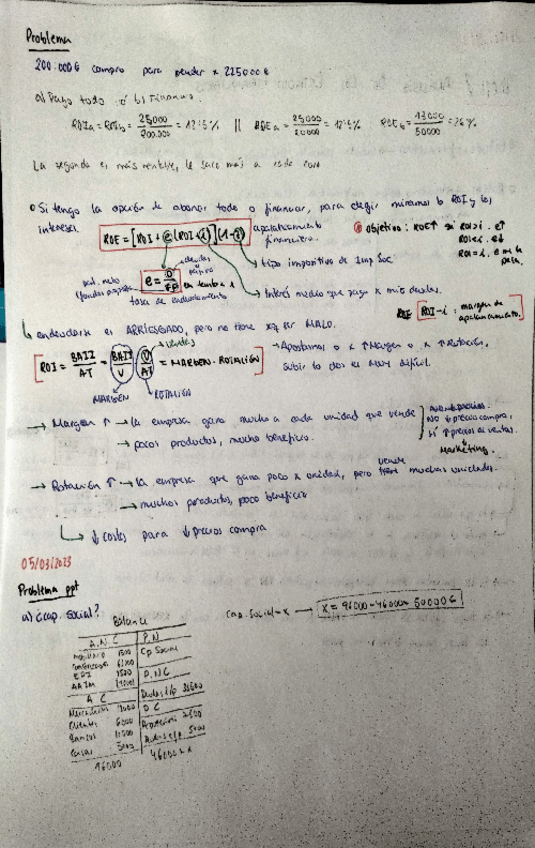 Problema
200.000€ compro para vender x 225000€
a) Pago todo ó b) Financio.
ROIa = ROIb = 25000/200.000 = 12'5% || ROEa = 25000/20000 = 12'5% ROEb = 13000/50000 = 26%
La segunda es más rentable, le saco más a
Si tengo la opción de abonar todo o financiar, para elegir miramos la ROI y los
intereses
ROE = [ROI + e (ROI - i)] (1 - t)
apalancamiento
financiero.
Objetivo: ROE↑ si ROI>i. e↑
ROI<i. e↓
ROI=i. e me la
pela.
e = D/FP en tanto x 1
deudas
propios
pat. neto
(fondos propios)
tasa de endeudamiento
tipo impositivo de Imp Soc.
Interés medio que pago x mis deudas.
ROI - i: margen de
apalancamiento.
endeudarse es ARRIESGADO, pero no tiene xq ser MALO.
ROI = BAII/AT = BAII/V · V/AT = MARGEN · ROTACIÓN
ventas
MARGEN
ROTACIÓN
Apostamos o x ↑Margen o x ↑Rotación,
subir los dos es MUY difícil.
→ Margen ↑ → la empresa gana mucho a cada unidad que vende
→ pocos productos, mucho beneficio.
NO ↓ precio compra,
SÍ ↑ precio de ventas.
Marketing.
→ Rotación ↑ → la empresa que gana poco x unidad, pero vende muchas unidades.
→ muchos productos, poco beneficio
↓ costes para ↓ precios compra
05/03/2023
Problema ppt
a) ¿cap. social?
Balance
Cap. Social = x → X = 96000 - 46000 = 50000€
A.N.C P.N
1500 Cp Social
Construcción
EPI 1500 P.N.C
AAIM
A C Deudas l/p
Mercaderías P C
Clientes 6000
Bancos
Caja 3000
96000 46000 + x